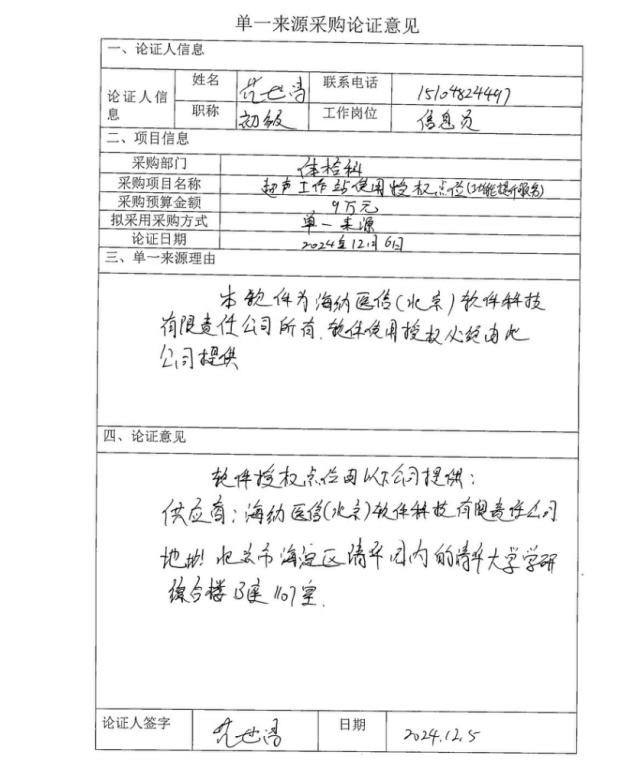 单一来源采购论证意见
一、论证人信息
论证人信息 姓名 范世涛 联系电话 15104824497
职称 初级 工作岗位 信息员
二、项目信息
采购部门 体检科
采购项目名称 超声工作站使用授权点位(功能提升服务)
采购预算金额 9万元
拟采用采购方式 单一来源
论证日期 2024年12月6日
三、单一来源理由
本软件为海纳医信(北京)软件科技
有限责任公司所有.软件使用授权必经由此
公司提供
四、论证意见
软件授权点位由以下公司提供:
供应商:海纳医信(北京)软件科技有限责任公司
地址:北京市海淀区清华园内的清华大学学研
综合楼B座1107室.
论证人签字 范世涛 日期 2024.12.5